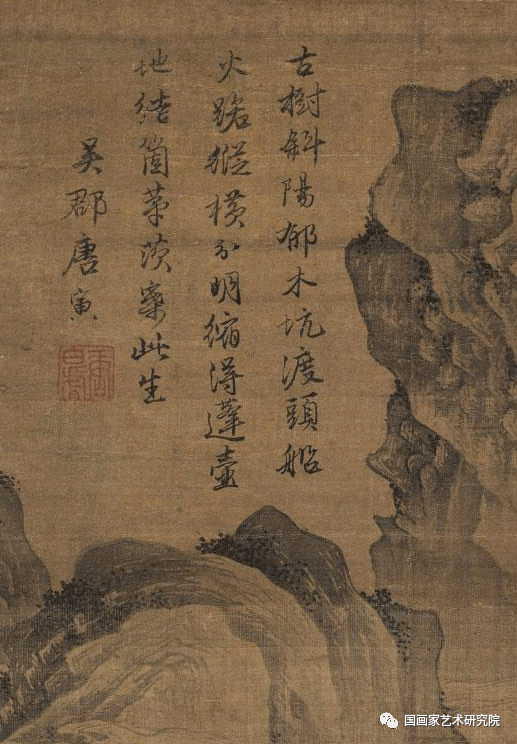 古樹斜陽郁木坑渡頭船
火路縱橫分明縮得蓬壺
地結箇茅茨此生
吳郡唐寅
国画家艺术研究院